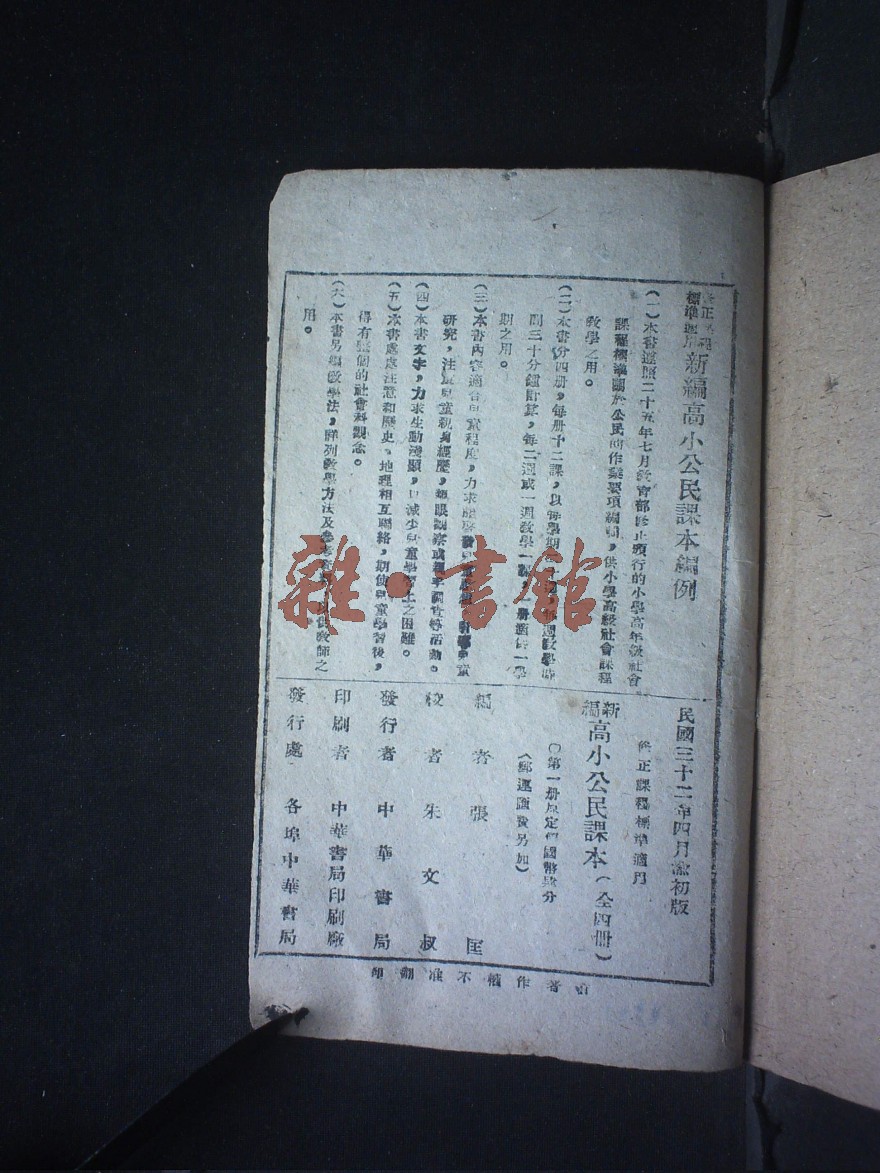 修正課程
標準適用
新編高小公民課本編例
(一)本書遵照二十五年七月教育部修正頒行的小學高年級社會
課程標準關於公民的作業要項編輯,供小學高級社會課程
教學之用。
(二)本書分四册,每册十二課,以每學期
週教學時
間三十分鐘計算,每二週或一週教學一課,一册適供一學
期之用。
(三)本書內容適合兒童程度,力求
兒童
研究,注重兒童親身經歷,親眼觀察或親手調查等活動。
(四)本書文字,力求生動淺顯,以減少兒童學習上之困難。
(五)本書處處注意和歷史、地理相互聯絡,期使兒童學習後,
得有整個的社會科觀念。
(六)本書另編教學法,詳列教學方法及參考
以供教師之
用。
民國三十二年四月渝初版
修正課程標準適用
新編
高小公民課本(全四册)
○第一册原定
國幣
分
(郵運匯費另加)
編者 張匡
校者 朱文叔
發行者 中華書局
印刷者 中華書局印刷廠
發行處 各埠中華書局
有著作權不准翻印
雜·書館